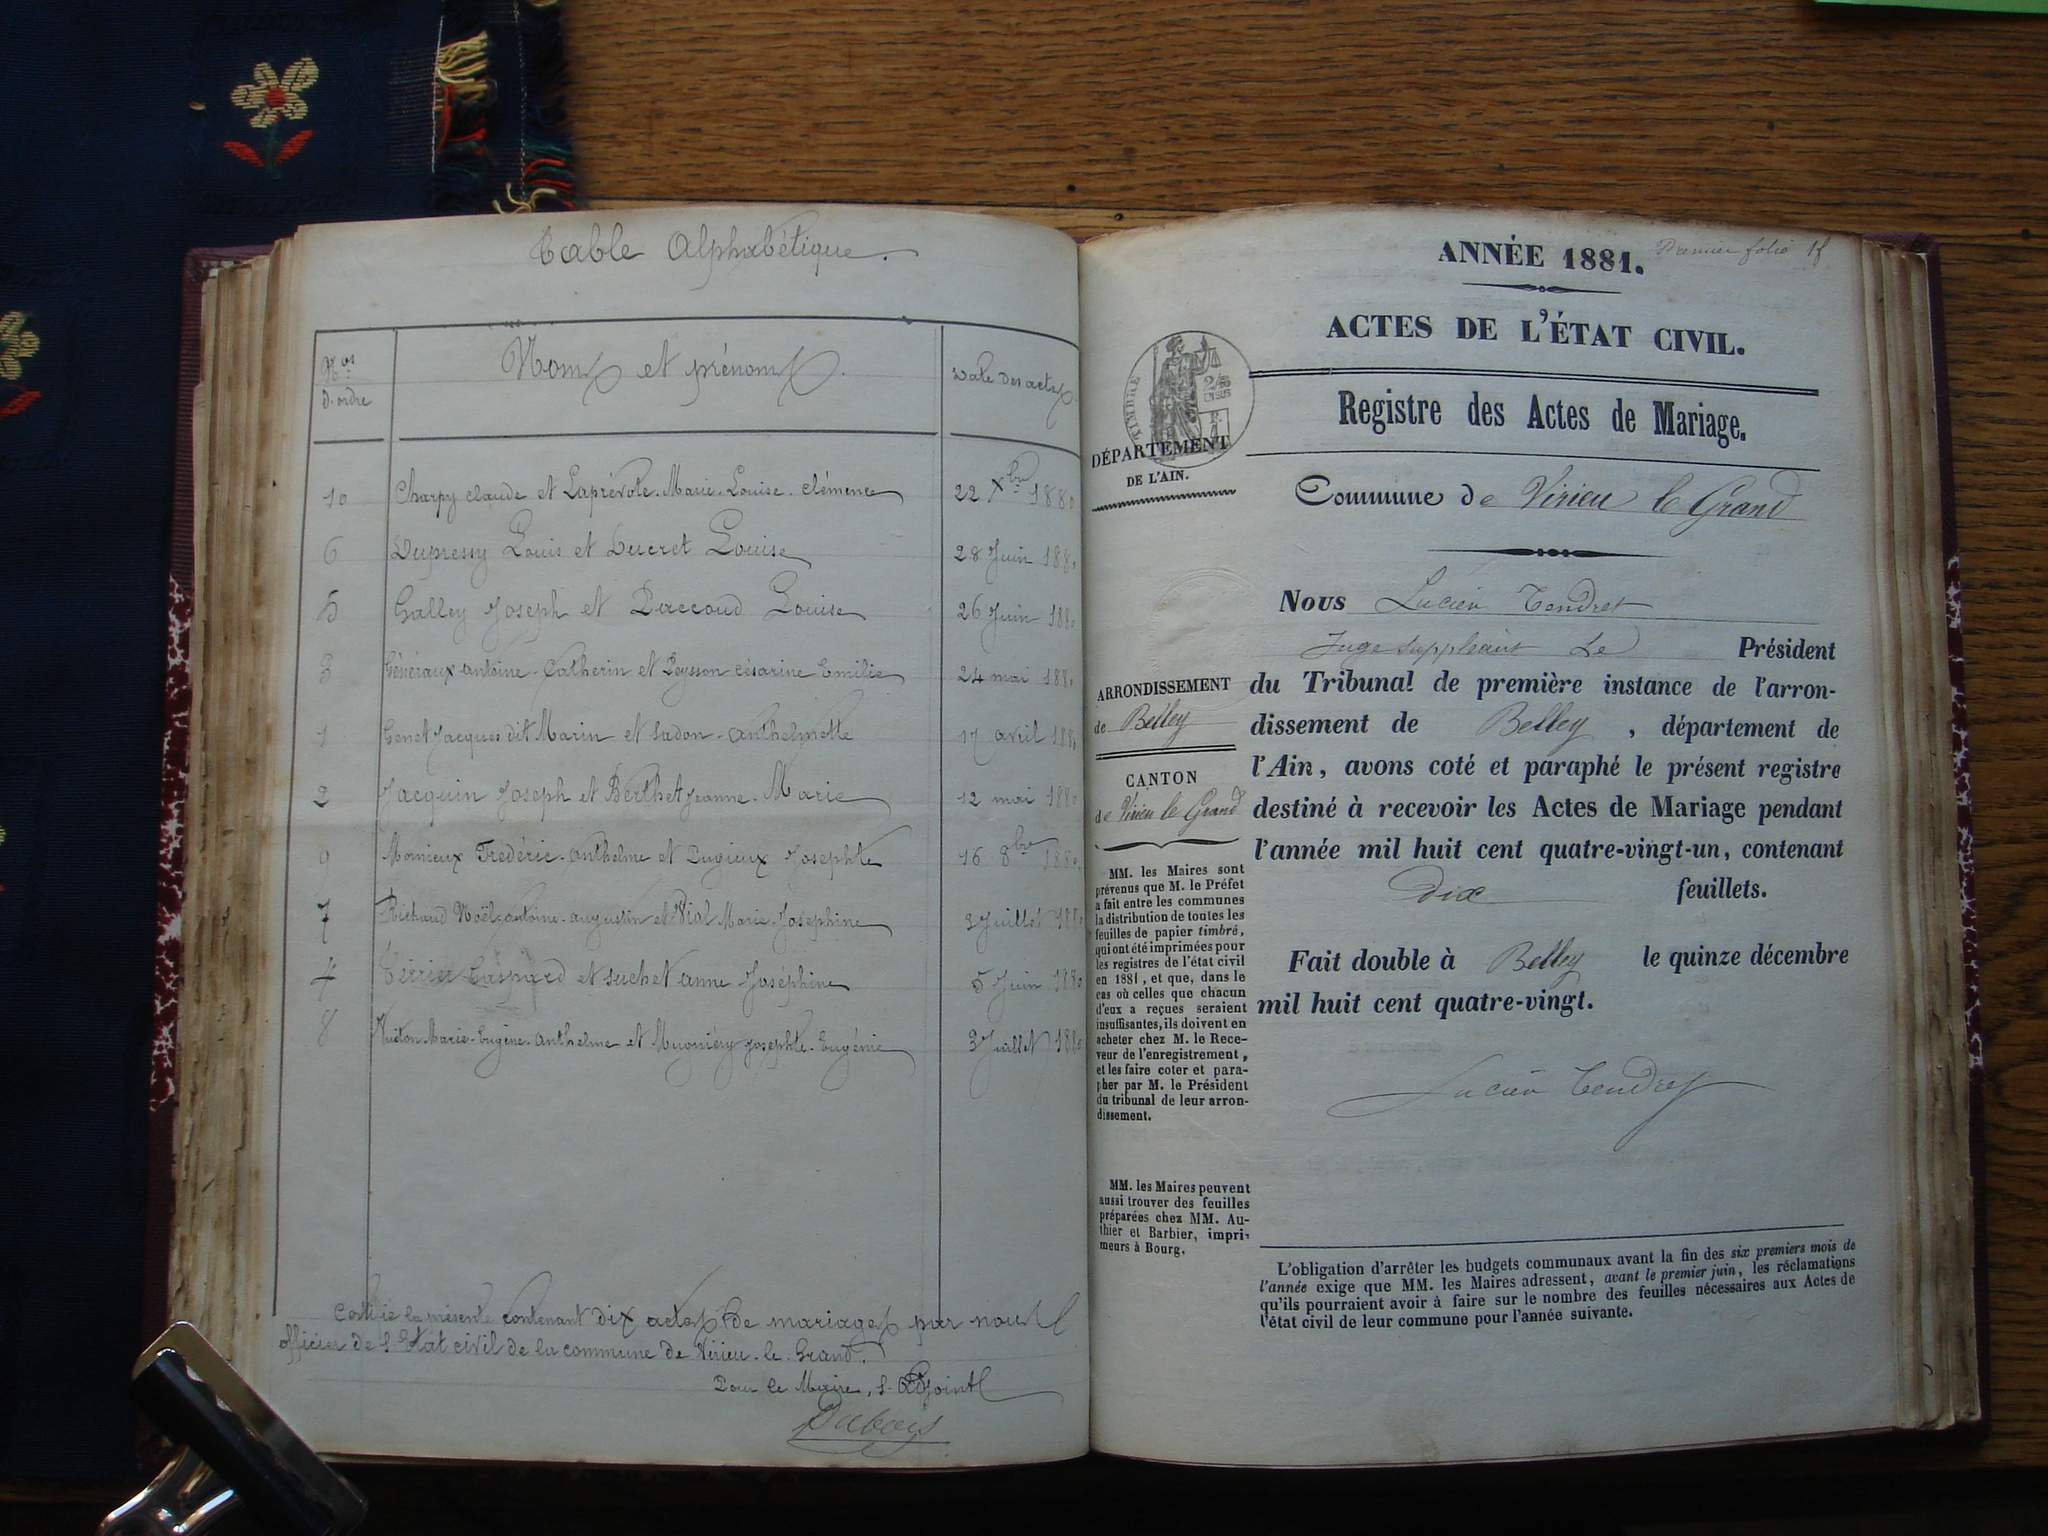 Table Alphabétique.
Nos d'ordre
Noms et prénoms.
Date des actes
10 Charpy Claude et Laprévote Marie-Louise-Clémence 22 Xbre 1880
6 Dupressy Louis et Ducret Louise 28 Juin 1880
5 Galley Joseph et Paccoud Louise 26 Juin 1880
3 Généraux Antoine-Catherin et Peysson Césarine Emilie 24 mai 1880
1 Genet Jacques dit Marin et Sadon-Anthelmette 17 avril 1880
2 Jacquin Joseph et Berthet Jeanne-Marie 12 mai 1880
9 Monieux Frédéric-Anthelme et Pugieux Josephte 16 8bre 1880
7 Richaud Noël-antoine-augustin et Vial Marie-Joséphine 3 Juillet 1880
4 Terrier Gaspard et Suchet anne Joséphine 5 Juin 1880
8 Marie-Eugène-Anthelme et Mugniéry Josephte-Eugénie 3 Juillet 1880
Certifié la présente contenant dix actes de mariages par nous
officier de l'Etat civil de la commune de Virieu-le-Grand.
Pour le Maire, l'Adjoint
Dubois
Premier folio
ANNÉE 1881.
ACTES DE L'ÉTAT CIVIL.
TIMBRE
Registre des Actes de Mariage.
DÉPARTEMENT
DE L'AIN.
Commune de Virieu le Grand
Nous Lucien Tendret
Juge suppléant Le Président
du Tribunal de première instance de l'arron-
dissement de Belley, département de
l'Ain, avons coté et paraphé le présent registre
destiné à recevoir les Actes de Mariage pendant
l'année mil huit cent quatre-vingt-un, contenant
dix feuillets.
Fait double à Belley le quinze décembre
mil huit cent quatre-vingt.
Lucien Tendret
ARRONDISSEMENT
de Belley
CANTON
de Virieu le Grand
MM. les Maires sont
prévenus que M. le Préfet
a fait entre les communes
la distribution de toutes les
feuilles de papier timbré,
qui ont été imprimées pour
les registres de l'état civil
en 1881, et que, dans le
cas où celles que chacun
d'eux a reçues seraient
insuffisantes, ils doivent en
acheter chez M. le Rece-
veur de l'enregistrement,
et les faire coter et para-
pher par M. le Président
du tribunal de leur arron-
dissement.
MM. les Maires peuvent
aussi trouver des feuilles
préparées chez MM. Au-
thier et Barbier, impri-
meurs à Bourg.
L'obligation d'arrêter les budgets communaux avant la fin des six premiers mois de
l'année exige que MM. les Maires adressent, avant le premier juin, les réclamations
qu'ils pourraient avoir à faire sur le nombre des feuilles nécessaires aux Actes de
l'état civil de leur commune pour l'année suivante.